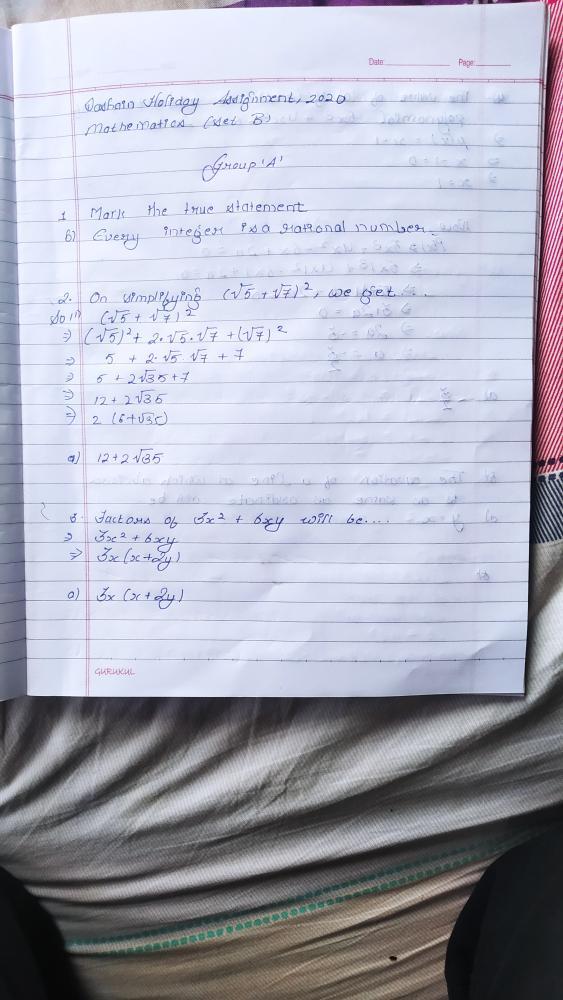 Date: Page:
Dashain Holiday Assignment, 2020
Mathematics (set B)
Group 'A'
1 Mark the true statement
b) Every integer is a rational number.
2. On simplifying (√5 + √7)², we get...
Soln (√5 + √7)²
⇒ (√5)² + 2·√5·√7 + (√7)²
⇒ 5 + 2·√5·√7 + 7
⇒ 5 + 2√35 + 7
⇒ 12 + 2√35
⇒ 2 (6+√35)
a) 12 + 2√35
3. Factors of 3x² + 6xy will be...
⇒ 3x² + 6xy
⇒ 3x (x+2y)
a) 3x (x+2y)
GURUKUL